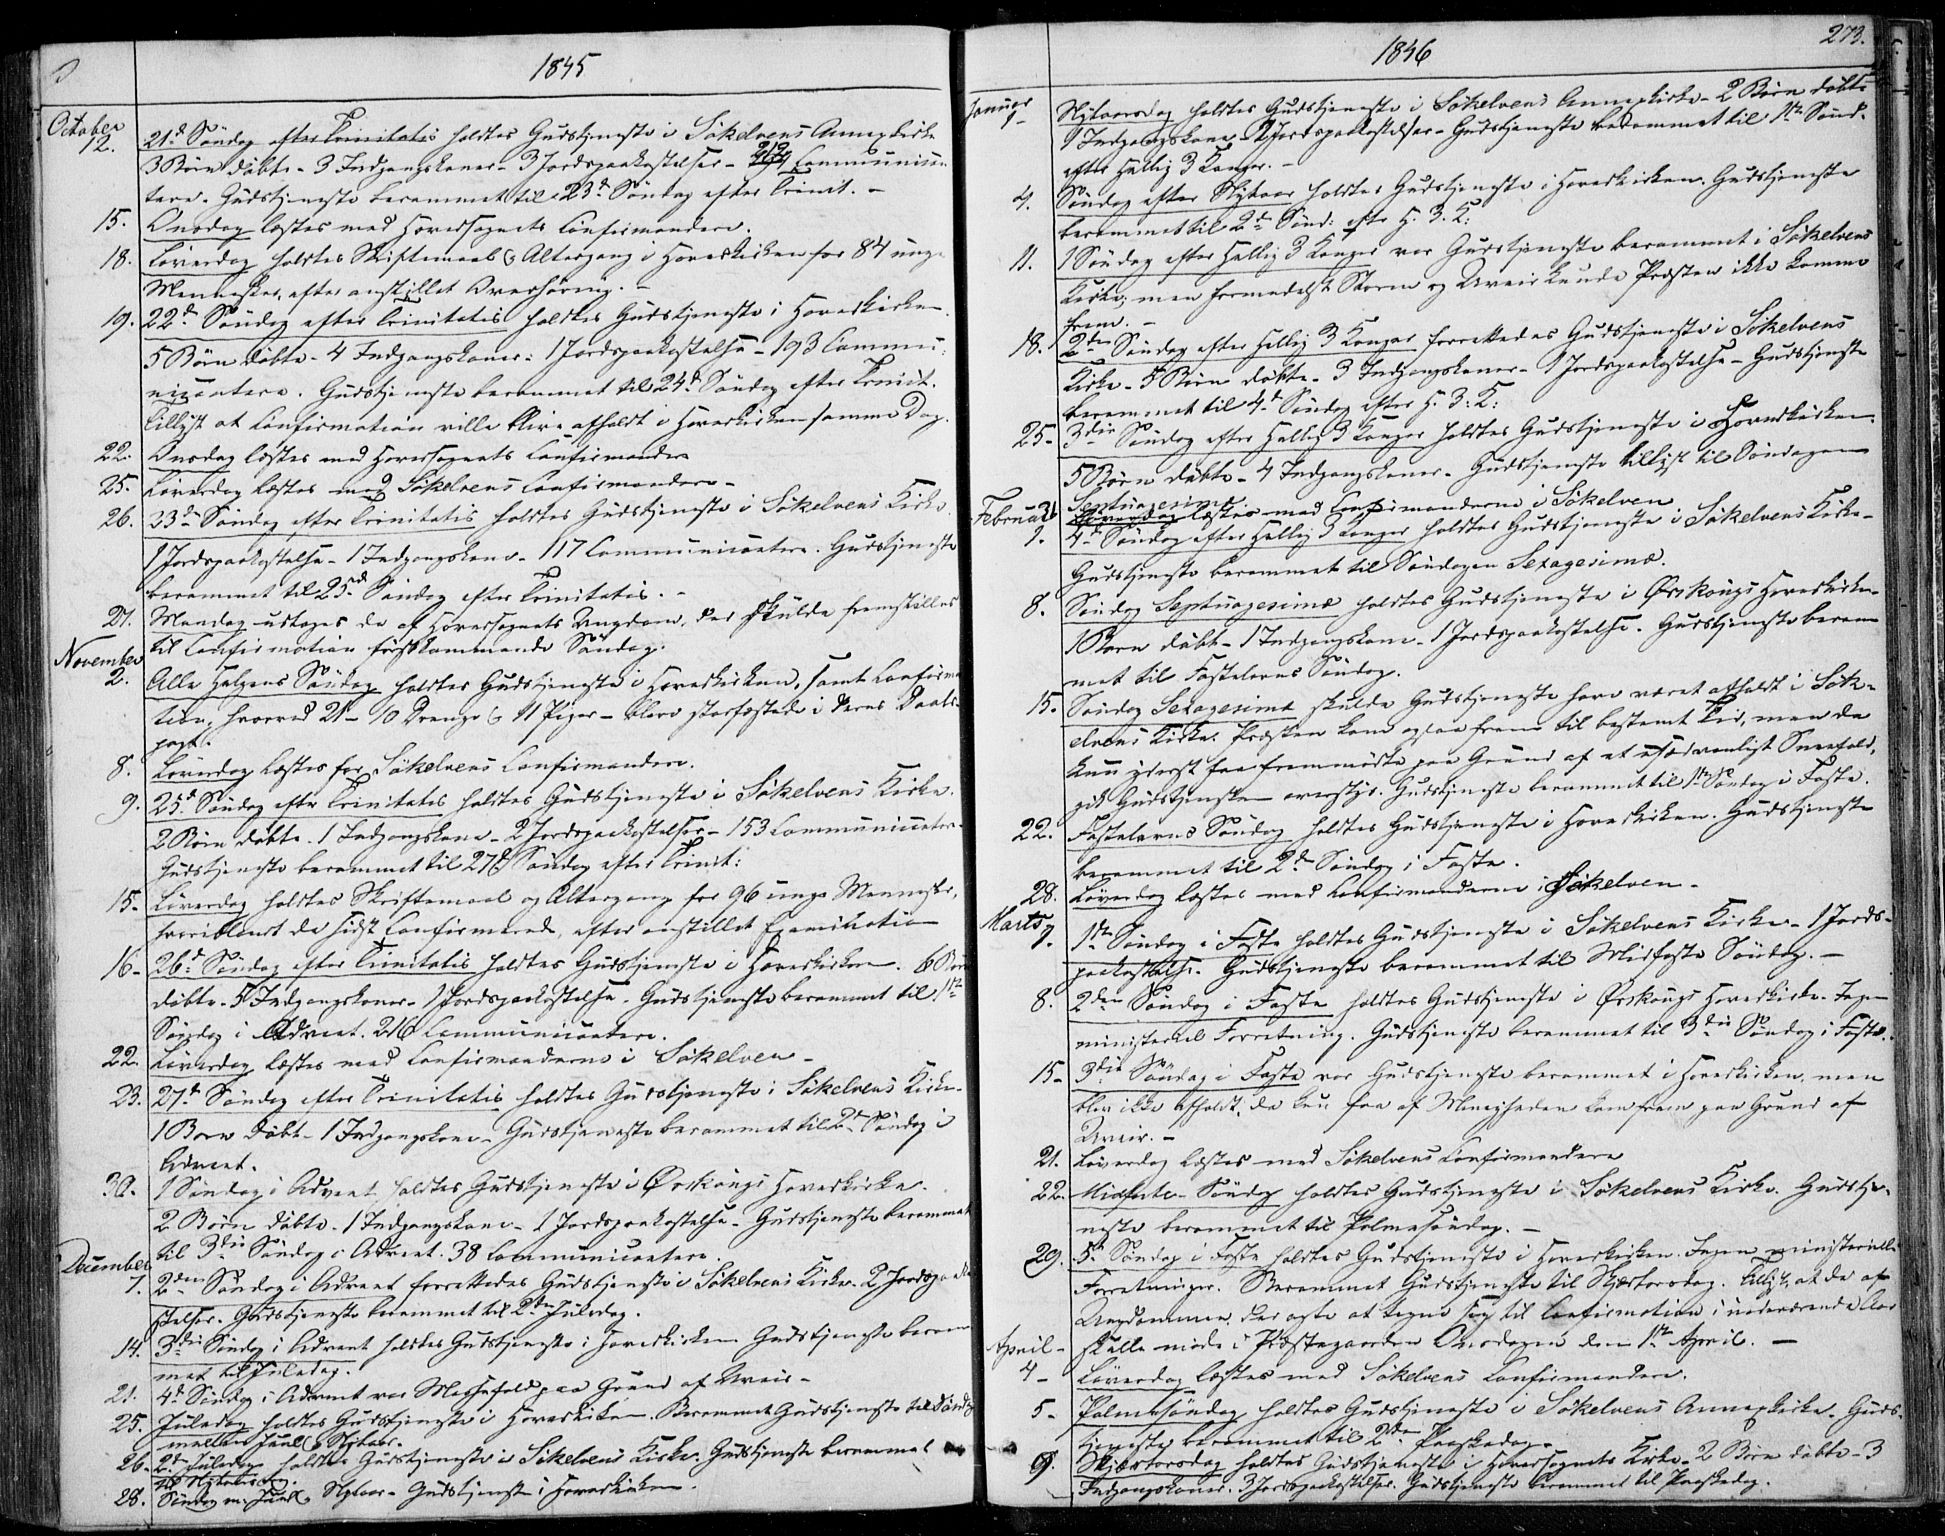 1845
October
12. 21de Søndag efter Trinitatis holdtes Gudstjeneste i Søkelvens Annexkirke
3 Børn døbte - 3 Indgangskoner - 3 Jordspaakastelser - 212 Communican-
tere. Gudstjeneste berammet til 23de Søndag efter Trinit. -
15. Onsdag læstes med Hovedsognets Confirmandere.
18. Løverdag holdtes Skriftemaal & Altergang i Hovedkirken for 84 unge
Mennesker, efter anstillet Overhøring. -
19. 22de Søndag efter Trinitatis holdtes Gudstjeneste i Hovedkirken
5 Børn døbte - 4 Indgangskoner - 1 Jordspaakastelse - 193 Commu-
nicantere. Gudstjeneste berammet til 24de Søndag efter Trinit.
Tillyst at Confirmation ville blive afholdt i Hovedkirken samme Dag.
22. Onsdag læstes med Hovedsognets Confirmander
25. Løverdag læstes med Søkelvens Confirmandere -
26. 23de Søndag efter Trinitatis holdtes Gudstjeneste i Søkelvens Kirke.
1 Jordspaakastelse - 1 Indgangskone - 117 Communicantere. Gudstjeneste
berammet til 25de Søndag efter Trinitatis. -
27. Mandag udtoges de af Hovedsognets Ungdom, der skulde fremstilles
til Confirmation førstkommende Søndag.
November
2. Alle Helgens Søndag holdtes Gudstjeneste i Hovedkirken, samt Confirma-
tion, hvorved 21 - 10 Drenge & 11 Piger - bleve stadfæstede i deres Daabs-
pagt.
8. Løverdag læstes for Søkelvens Confirmandere.
9. 25de Søndag efter Trinitatis holdtes Gudstjeneste i Søkelvens Kirke.
2 Børn døbte - 1 Indgangskone - 2 Jordspaakastelser - 153 Communicanter.
Gudstjeneste berammet til 27de Søndag efter Trinit:
15. Løverdag holdtes Skriftemaal og Altergang for 96 unge Mennesker,
hvoriblandt de sidst Confirmerede, efter anstillet Examination
16. 26de Søndag efter Trinitatis holdtes Gudstjeneste i Hovedkirken. 6 Børn
døbte - 5 Indgangskoner - 1 Jordspaakastelse - Gudstjeneste berammet til 1ste
Søndag i Advent. 216 Communicantere.
22. Løverdag læstes med Confirmanderne i Søkelven -
23. 27de Søndag efter Trinitatis holdtes Gudstjeneste i Søkelvens Kirke -
1 Barn døbt - 1 Indgangskone - Gudstjeneste berammet til 2den Søndag i
Advent.
30. 1 Søndag i Advent holdtes Gudstjeneste i Ørskougs Hovedkirke.
2 Børn døbte - 1 Indgangskone - 1 Jordspaakastelse - Gudstjeneste berammet
til 3die Søndag i Advent. 38 Communicantere.
December
7. 2den Søndag i Advent forrettedes Gudstjeneste i Søkelvens Kirke - 2 Jordspaaka-
stelser. Gudstjeneste berammet til 2den Juledag.
14. 3die Søndag i Advent holdtes Gudstjeneste i Hovedkirken Gudstjeneste beram-
met til Juledag.
21. 4de Søndag i Advent var Messefald paa Grund af Uveir -
25. Juledag holdtes Gudstjeneste i Hovedkirken. Berammet Gudstjeneste til Søndag
mellem Juul & Nytaar.
26. 2den Juledag holdtes Gudstjeneste i Søkelvens Kirke. Gudstjeneste berammet
til Nytaarsdag.
28. Søndag m. Juul & Nytaar - Gudstjeneste i Hovedkirken.
1846
273.
Januar
1. Nytaarsdag holdtes Gudstjeneste i Søkelvens Annexkirke - 2 Børn døbte
1 Indgangskone - Jordspaakastelser - Gudstjeneste berammet til 1ste Sønd.
efter Hellig 3 Konger. -
4. Søndag efter Nytaar holdtes Gudstjeneste i Hovedkirken. Gudstjeneste
berammet til 2den Sønd: efter H. 3. K:
11. 1 Søndag efter Hellig 3 Konger var Gudstjeneste berammet i Søkelvens
Kirke; men formedelst Storm og Uveir kunde Præsten ikke komme
frem. -
18. 2den Søndag efter Hellig 3 Konger forrettedes Gudstjeneste i Søkelvens
Kirke - 5 Børn døbte - 3 Indgangskoner - 1 Jordspaakastelse - Gudstjeneste
berammet til 4de Søndag efter H. 3. K:
25. 3die Søndag efter Hellig 3 Konger holdtes Gudstjeneste i Hovedkirken
5 Børn døbte - 4 Indgangskoner - Gudstjeneste tillyst til Søndagen
Septuagesima
31 Løverdag læstes med Confirmanderne i Søkelven
Februar
1. 4de Søndag efter Hellig 3 Konger holdtes Gudstjeneste i Søkelvens Kirke -
Gudstjeneste berammet til Søndagen Sexagesimæ.
8. Søndag Septuagesimæ holdtes Gudstjeneste i Ørskougs Hovedkirke -
1 Barn døbt - 1 Indgangskone - 1 Jordspaakastelse. Gudstjeneste beram-
met til Fastelavns Søndag.
15. Søndag Sexagesima skulde Gudstjeneste have været afholdt i Søk-
elvens Kirke. Præsten kom ogsaa frem til bestemt Tid, men da
kun yderst faa fremmødte paa Grund af et usædvanligt Sneefald,
gik Gudstjenesten overstyr. Gudstjeneste berammet til 1ste Søndag i Faste.
22. Fastelavns Søndag holdtes Gudstjeneste i Hovedkirken. Gudstjeneste
berammet til 2den Søndag i Faste.
28. Løverdag læstes med Confirmanderne i Søkelven -
Marts
1. 1ste Søndag i Faste holdtes Gudstjeneste i Søkelvens Kirke - 1 Jords-
paakastelse. Gudstjeneste berammet til Midfaste Søndag. -
8. 2den Søndag i Faste holdtes Gudstjeneste i Ørskougs Hovedkirke. Ingen
ministeriel Forretning. Gudstjeneste berammet til 3die Søndag i Faste.
15. 3die Søndag i Faste var Gudstjeneste berammet i Hovedkirken, men
blev ikke afholdt, da kun faa af Menigheden kom frem paa Grund af
Uveir. -
21. Løverdag læstes med Søkelvens Confirmandere
22. Midfaste-Søndag holdtes Gudstjeneste i Søkelvens Kirke. Gudstje-
neste berammet til Palmesøndag. -
29. 5te Søndag i Faste holdtes Gudstjeneste i Hovedkirken. Ingen ministerielle
Forretninger. Berammet Gudstjeneste til Skjærtorsdag. Tillyst, at de af
Ungdommen, der agte at tegne sig til Confirmation i nærværende Aar
skulle møde i Præstegaarden Onsdagen den 1ste April. -
April
4. Løverdag læstes med Søkelvens Confirmandere.
5. Palmesøndag holdtes Gudstjeneste i Søkelvens Annexkirke. Guds-
tjeneste berammet til 2den Paaskedag.
9. Skjærtorsdag holdtes Gudstjeneste i Hovedsognets Kirke - 2 Børn døbte - 3
Indgangskoner. 3 Jordspaakastelser. Gudstjeneste berammet til Paaskedag.